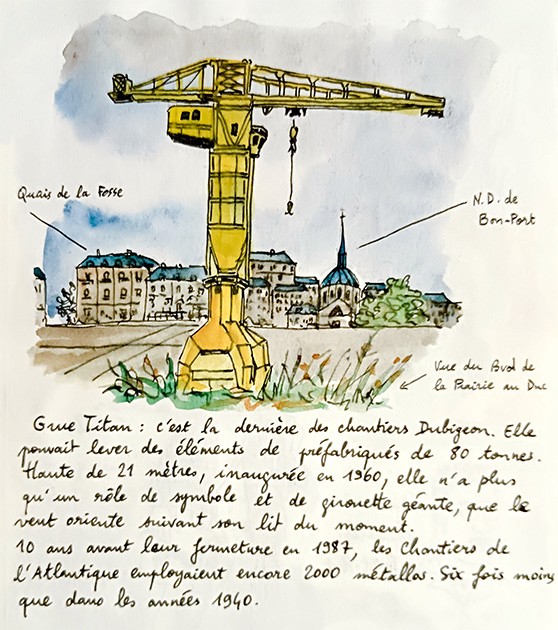 Quais de la Fosse
N.D. de
Bon-Port
Vue du Bvd de
la Prairie au Duc
Grue Titan : c'est la dernière des chantiers Dubigeon. Elle
pouvait lever des éléments de préfabriqués de 80 tonnes.
Haute de 21 mètres, inaugurée en 1960, elle n'a plus
qu'un rôle de symbole et de girouette géante, que le
vent oriente suivant son lit du moment.
10 ans avant leur fermeture en 1987, les Chantiers de
l'Atlantique employaient encore 2000 métallos. Six fois moins
que dans les années 1940.